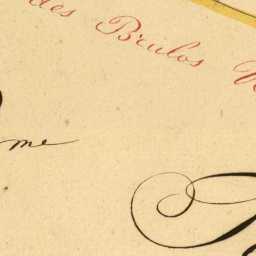 des Brulos
me